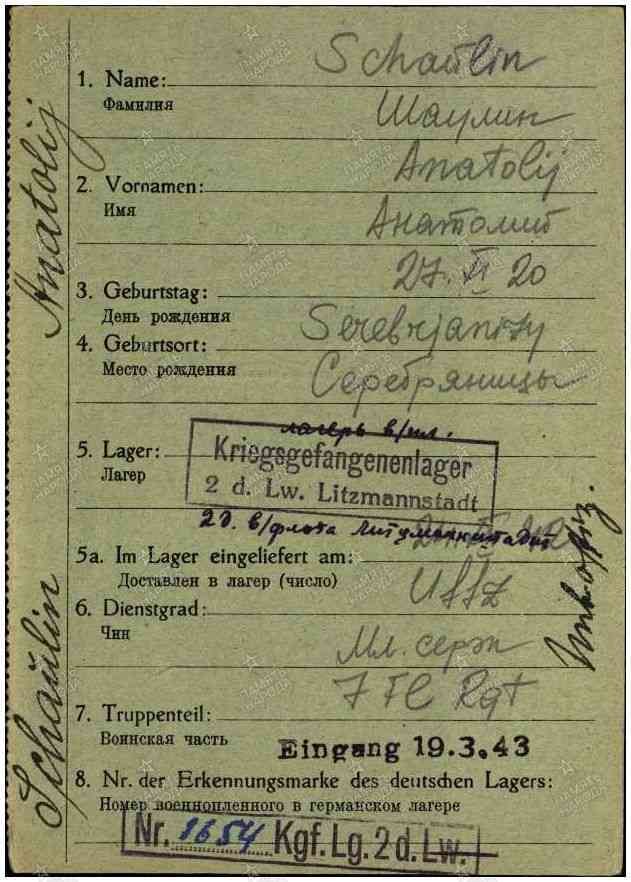 Schaŭlin
1. Name:
Фамилия
Шаулин
Anatolij
2. Vornamen:
Имя
Анатолий
27. XI 20
3. Geburtstag:
День рождения
Serebrjanizy
4. Geburtsort:
Место рождения
Серебряницы
лагерь в/пл.
5. Lager:
Лагер
Kriegsgefangenenlager
2 d. Lw. Litzmannstadt
2д. в/флота Литцманштадт
5a. Im Lager eingeliefert am:
Доставлен в лагер (число)
Uffz
6. Dienstgrad:
Чин
Мл. серж
7 Rgt
7. Truppenteil:
Воинская часть
Eingang 19.3.43
8. Nr. der Erkennungsmarke des deutschen Lagers:
Номер военнопленного в германском лагере
Nr. 1654 Kgf. Lg. 2 d. Lw.
Schaŭlin Anatolij
Unteroffiz.
ПАМЯТЬ НАРОДА